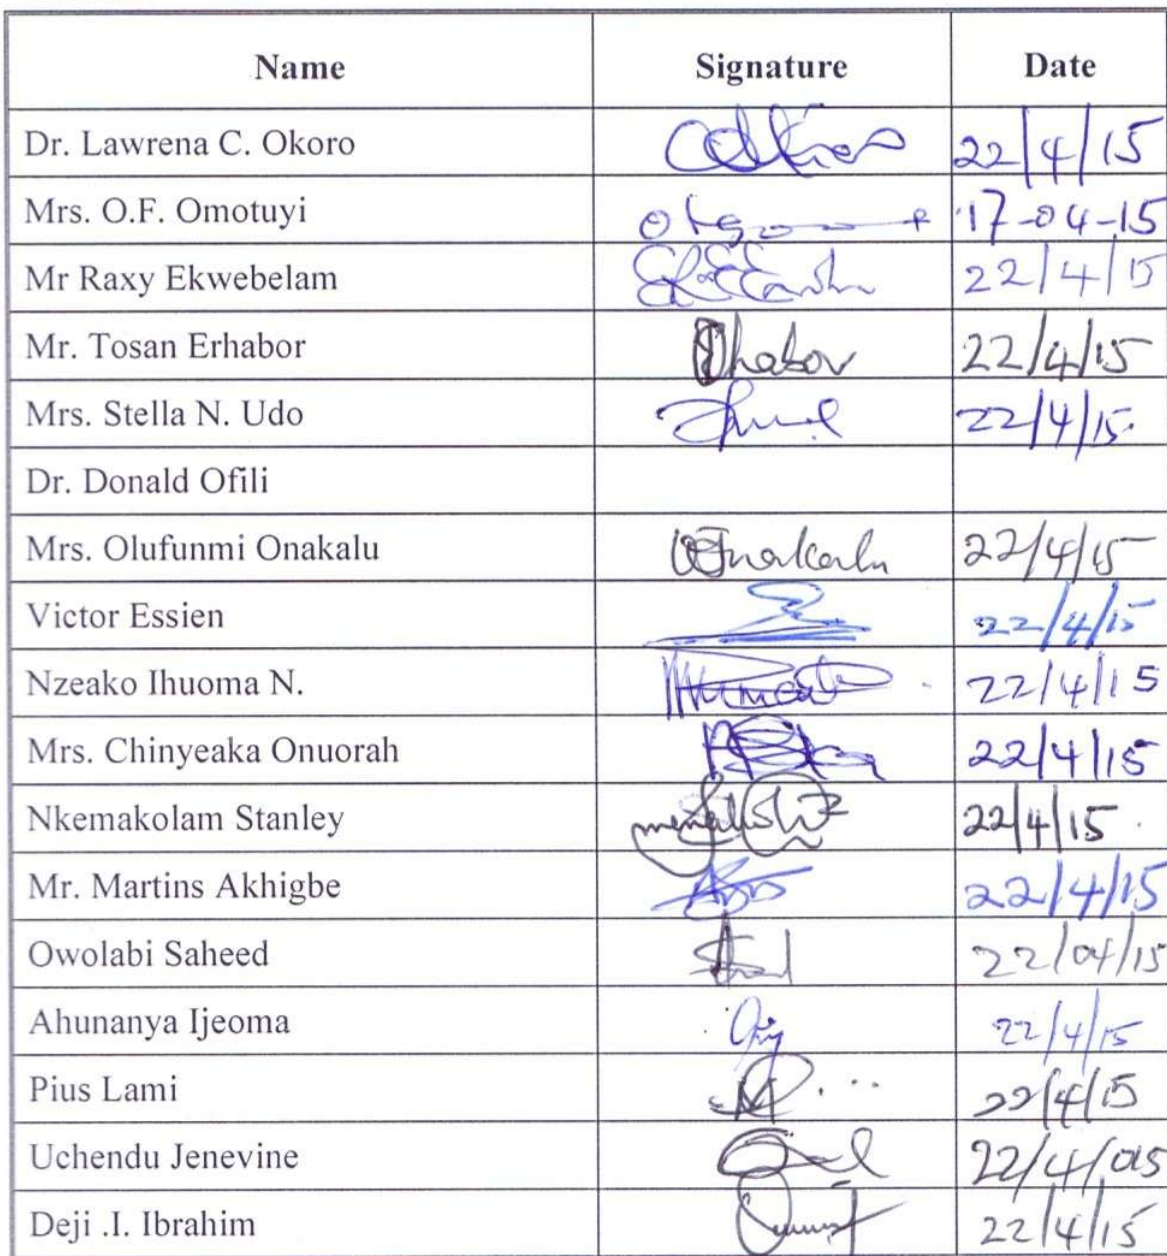 Name Signature Date
Dr. Lawrena C. Okoro 22/4/15
Mrs. O.F. Omotuyi 17-04-15
Mr Raxy Ekwebelam 22/4/15
Mr. Tosan Erhabor 22/4/15
Mrs. Stella N. Udo 22/4/15
Dr. Donald Ofili
Mrs. Olufunmi Onakalu 22/4/15
Victor Essien 22/4/15
Nzeako Ihuoma N. 22/4/15
Mrs. Chinyeaka Onuorah 22/4/15
Nkemakolam Stanley 22/4/15
Mr. Martins Akhigbe 22/4/15
Owolabi Saheed 22/04/15
Ahunanya Ijeoma 22/4/15
Pius Lami 22/4/15
Uchendu Jenevine 22/4/015
Deji .I. Ibrahim 22/4/15